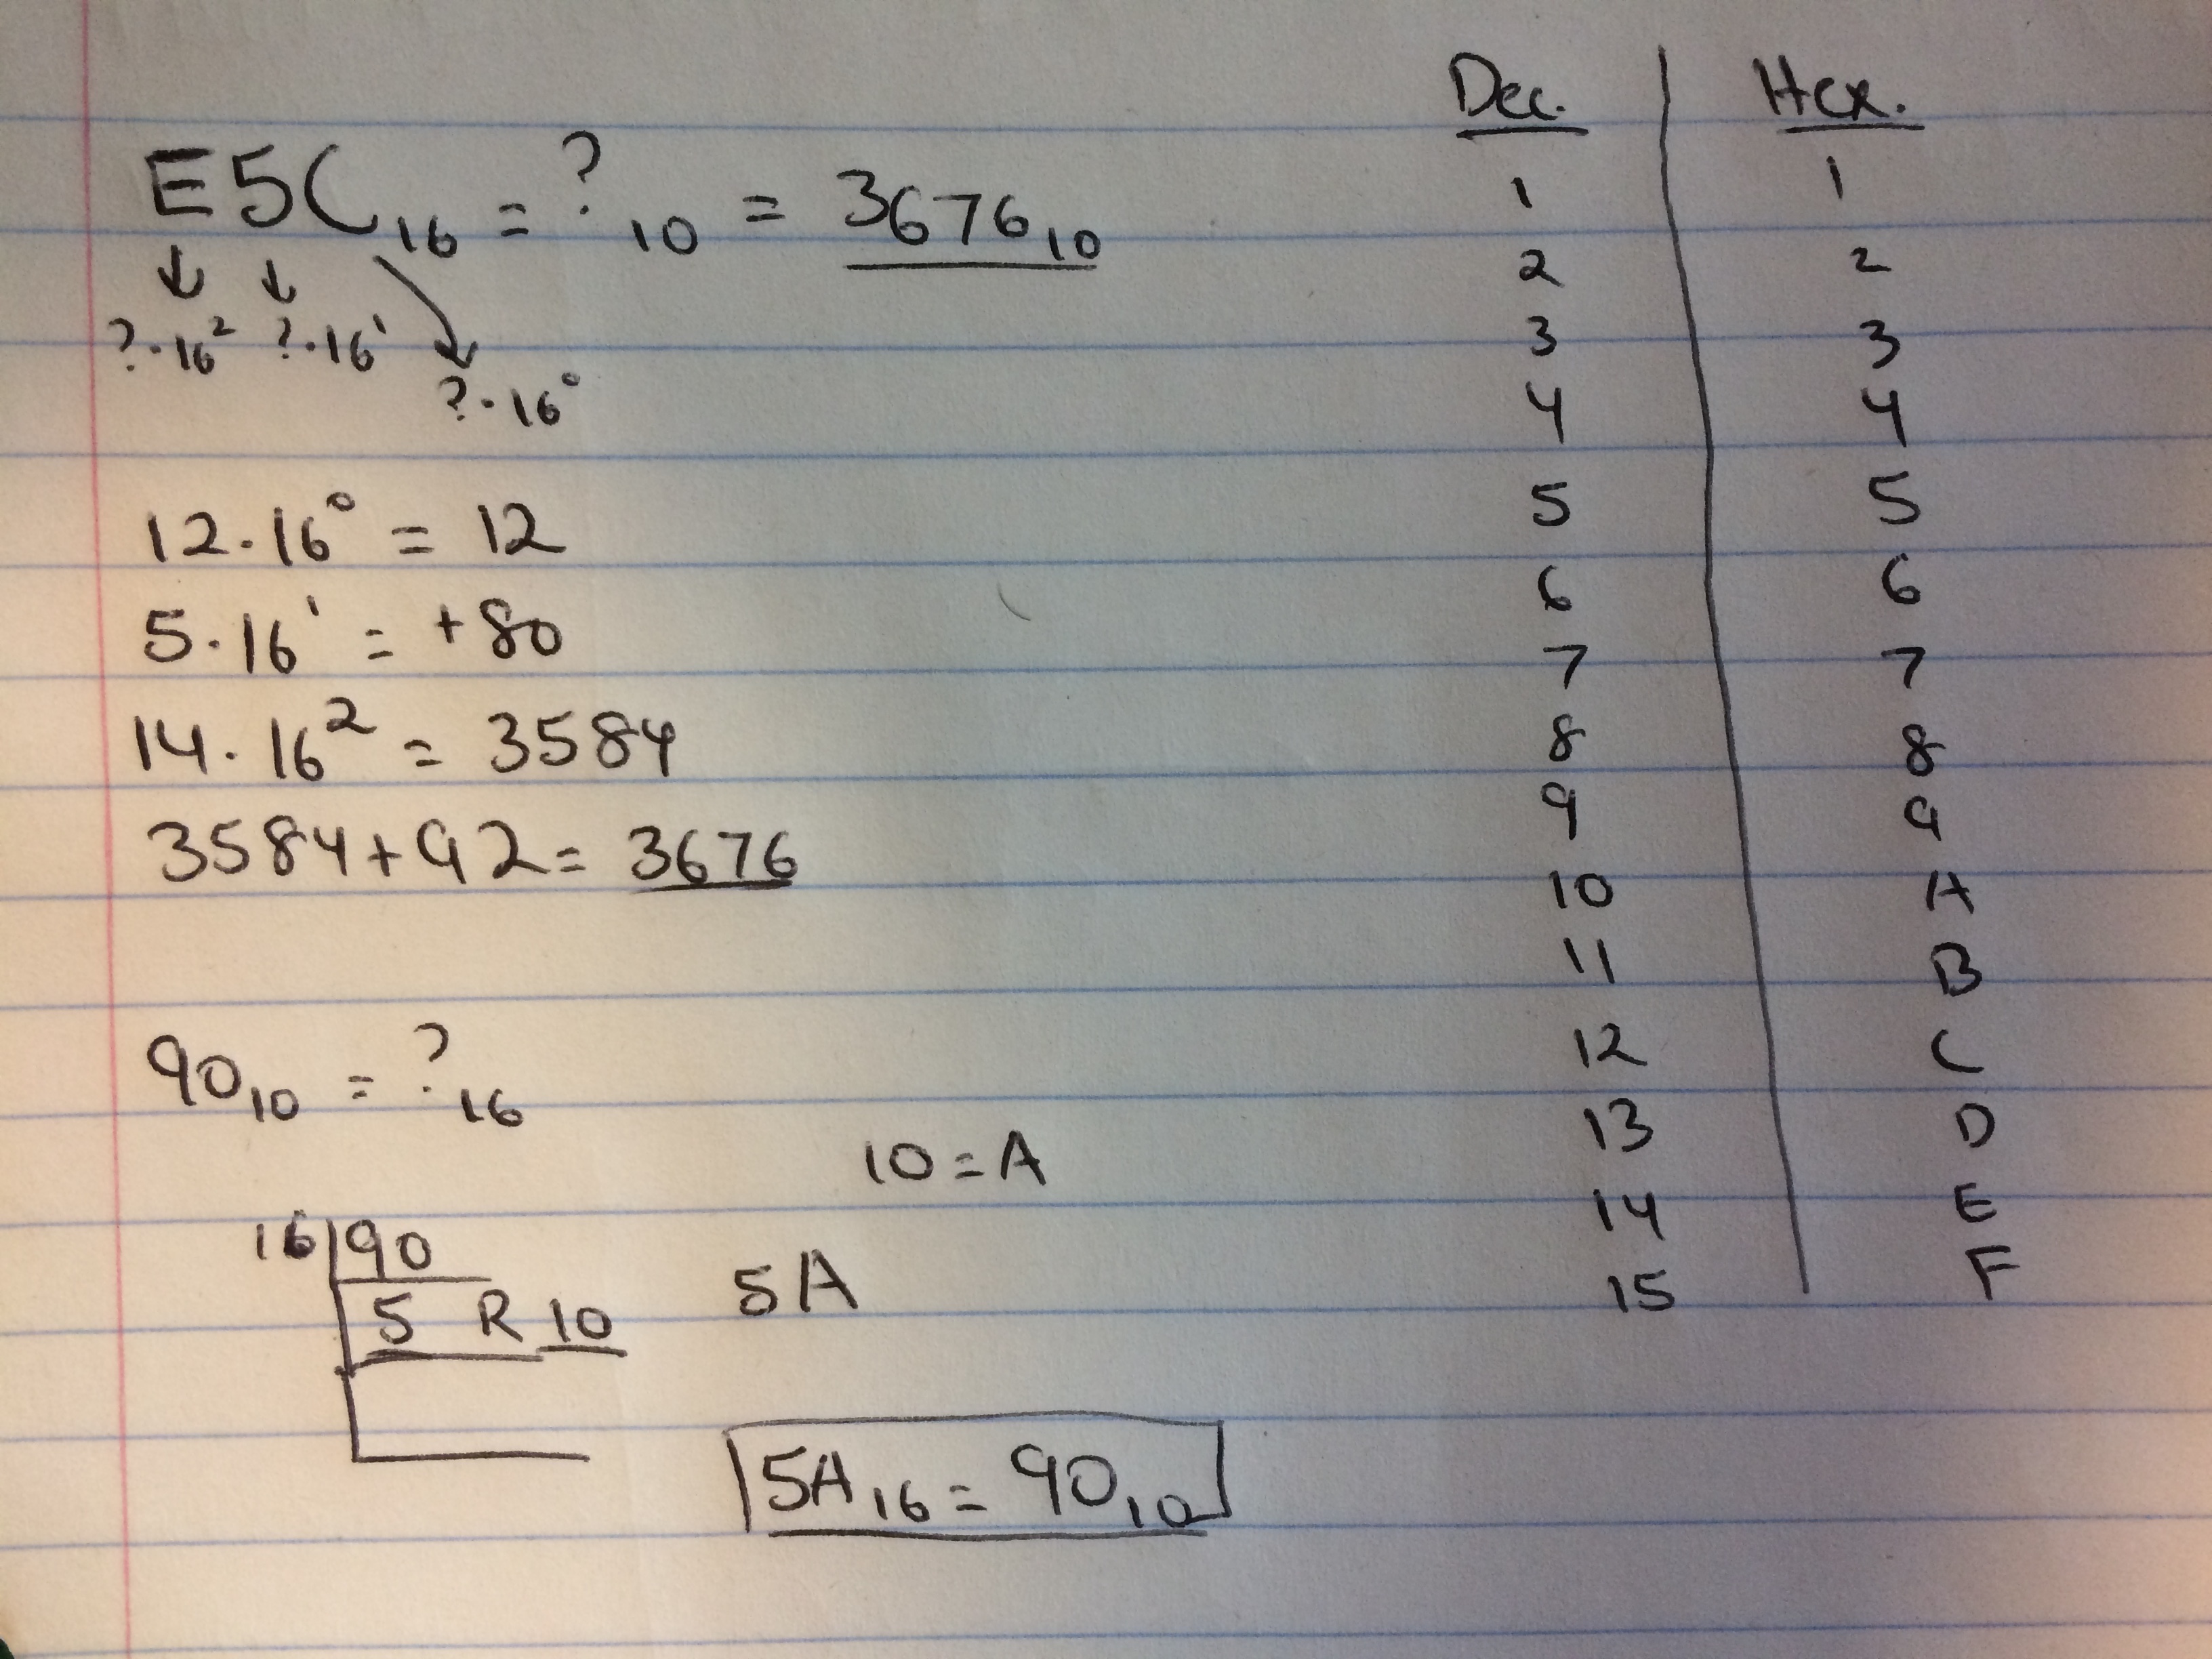 E5C₁₆ = ?₁₀ = 3676₁₀
?·16² ?·16¹
?·16⁰
12·16⁰ = 12
5·16¹ = +80
14·16² = 3584
3584+92 = 3676
90₁₀ = ?₁₆
10=A
16 90
5 R 10 5A
5A₁₆ = 90₁₀
Dec. Hex.
1 1
2 2
3 3
4 4
5 5
6 6
7 7
8 8
9 9
10 A
11 B
12 C
13 D
14 E
15 F